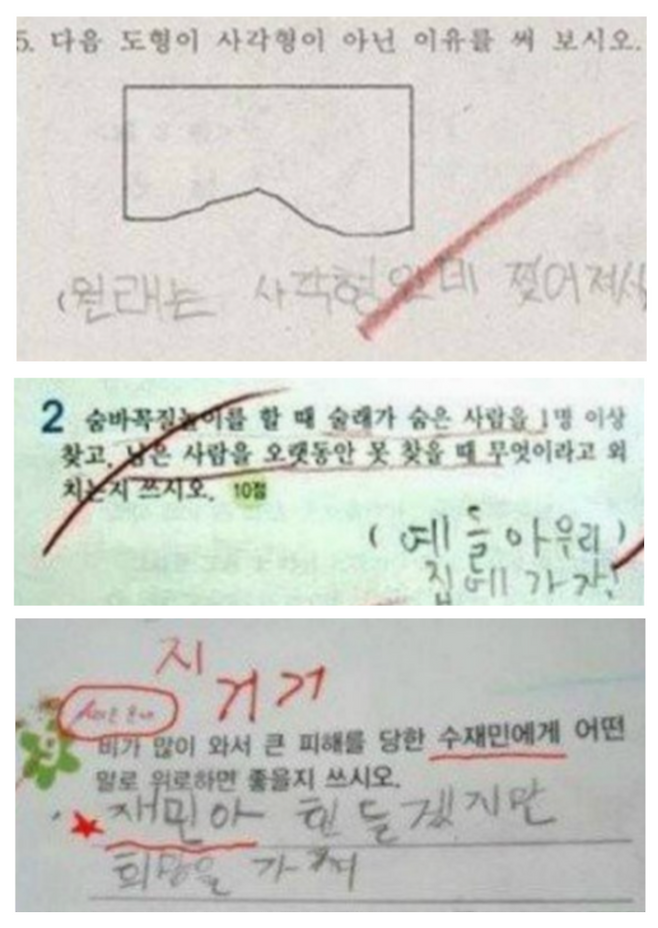 5. 다음 도형이 사각형이 아닌 이유를 써 보시오.
(원래는 사각형인데 찢어져서
2 숨바꼭질놀이를 할 때 술래가 숨은 사람을 1명 이상
찾고, 남은 사람을 오랫동안 못 찾을 때 무엇이라고 외
치는지 쓰시오. 10점
(얘들아우리)
집에가자!
지거거
9
비가 많이 와서 큰 피해를 당한 수재민에게 어떤
말로 위로하면 좋을지 쓰시오.
재민아 힘들겠지만
희망을 가져